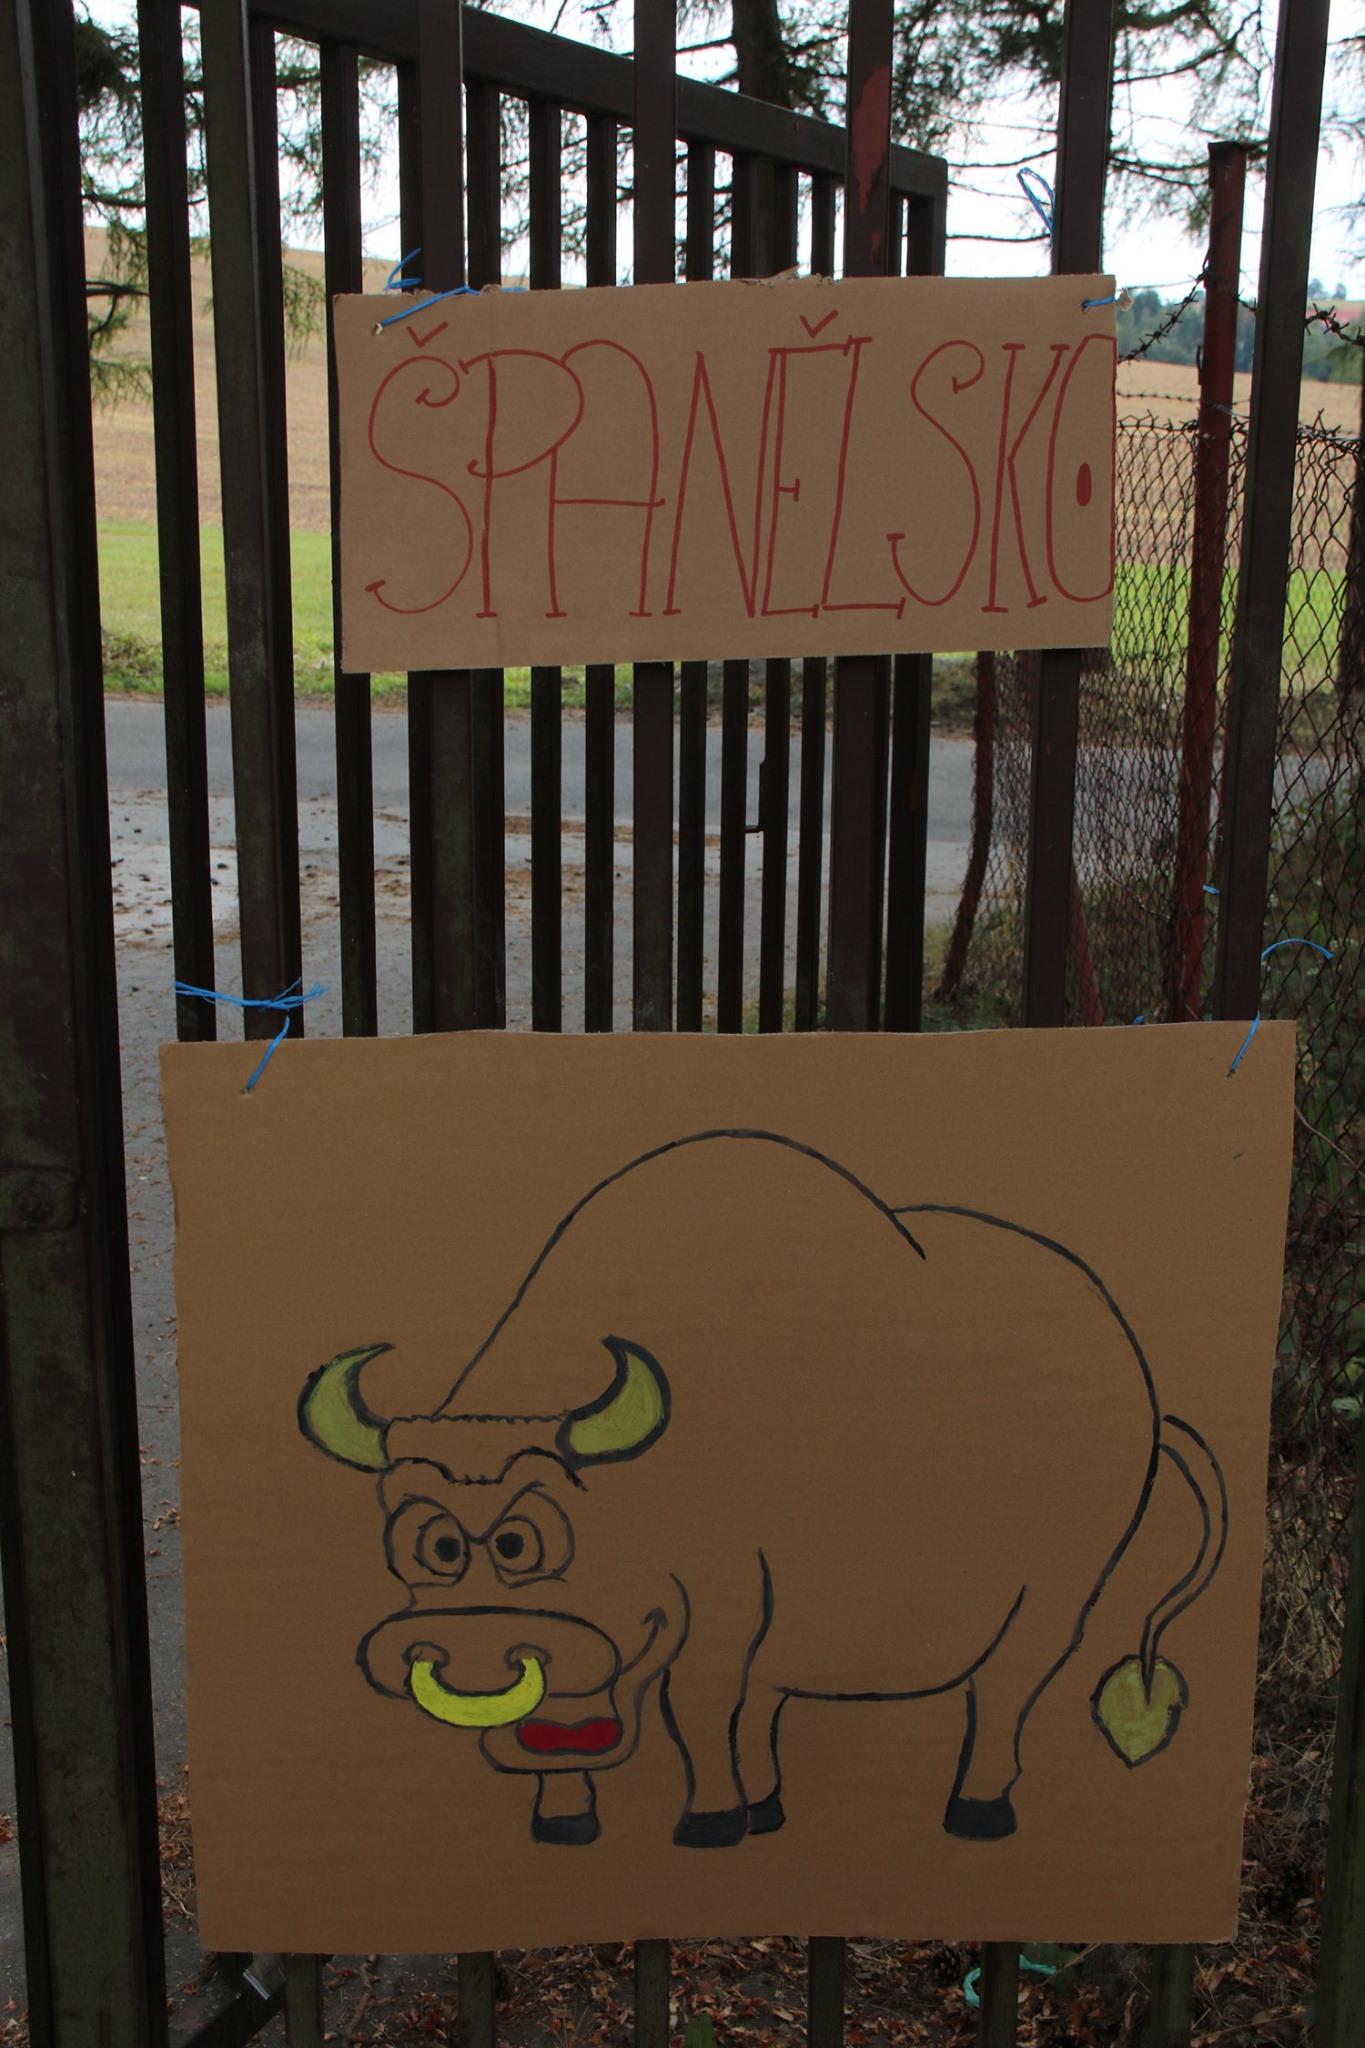 ŠPANĚLSKO